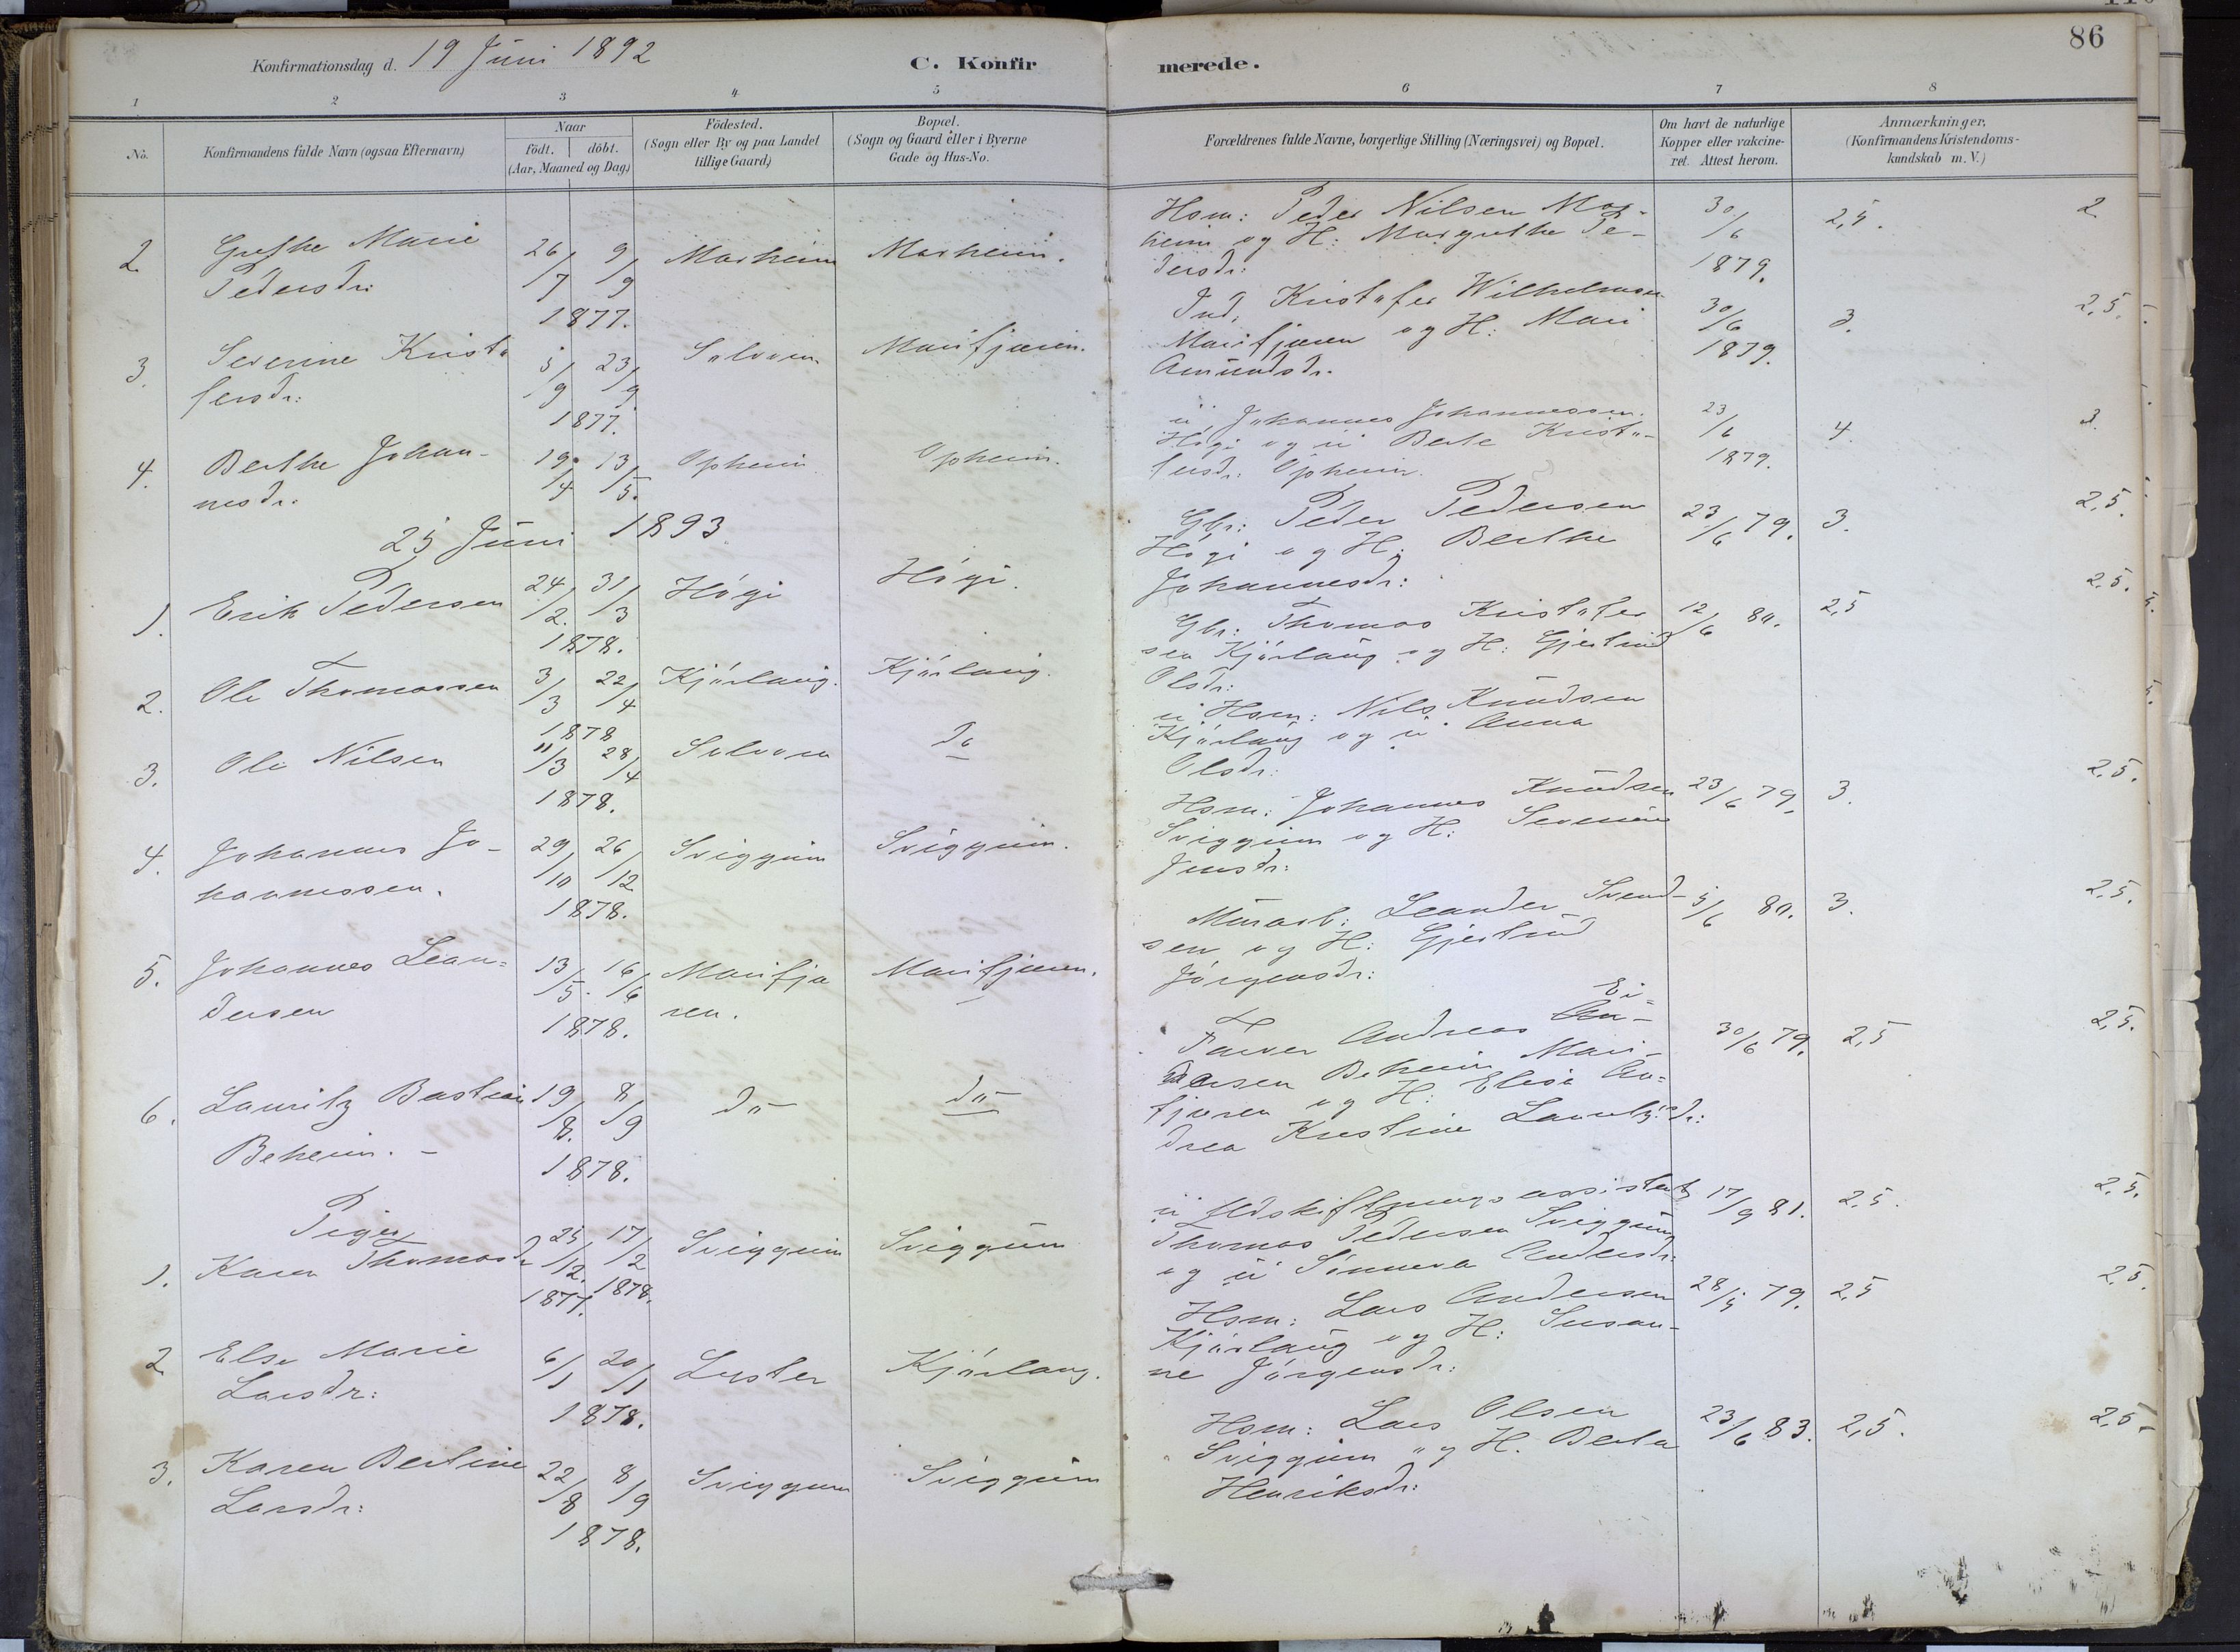 86
Konfirmationsdag d. 19 Juni 1892
C. Konfirmerede.
1 2 3 4 5 6 7 8
No.
Konfirmandens fulde Navn (ogsaa Efternavn)
Naar
födt. döbt.
(Aar, Maaned og Dag.)
Födested.
(Sogn eller By og paa Landet
tillige Gaard.)
Bopæl.
(Sogn og Gaard eller i Byerne
Gade og Hus-No.
Forældrenes fulde Navne, borgerlige Stilling (Næringsvei) og Bopæl.
Om havt de naturlige
Kopper eller vakcine-
ret. Attest herom.
Anmærkninger,
(Konfirmandens Kristendoms-
kundskab m. V.)
2. Grethe Marie
Pedersdr:
26/7 9/9
1877.
Marheim
Marheim.
Hsm: Peder Nilsen Mar-
heim og H: Margrethe Pe-
dersdr:
30/6
1879.
2,5. 2
3. Severine Kristo
fersdr:
5/9 23/9
1877.
Solvorn
Marifjæren.
Ind. Kristofer Wilhelmsen
Marifjæren og H: Mari
Amundsdr.
30/6
1879.
3. 2,5.
4. Berthe Johan-
nesdr.
19/4 13/5.
Opheim
Opheim.
u, Johannes Johannessen
Högi og u Berte Kristo-
fersdr. Opheim.
23/6
1879.
4. 3.
25 Juni 1893.
1. Erik Pedersen
24/2. 31/3
1878.
Högi
Högi.
Gbr: Peder Pedersen
Högi og H: Berthe
Johannesdr:
23/6 79.
3. 2,5.
2. Ole Thomassen
3/3 22/4
1878
Kjörlaug.
Kjörlaug.
Gbr: Thomas Kristofer
sen Kjörlaug og H: Gjertrud
Olsdr:
12/6 80.
2,5 2,5.
3. Ole Nilsen
11/3 28/4
1878.
Solvorn
Do
u Hsm: Nils Knudsen
Kjörlaug og u Anna
Olsdr:
4. Johannes Jo-
hannessen.
29/10 26/12
1878.
Sviggum
Sviggum.
Hsm: Johannes Knudsen
Sviggum og H: Severine
Jensdr:
23/6 79.
3. 2,5.
5. Johannes Lean-
dersen
13/5. 16/6
1878.
Marifjæ
ren.
Marifjæren.
Murarb: Leander Svend-
sen og H: Gjertrud
Jörgensdr:
5/6 80.
3. 2,5.
6. Lauritz Bastian
Beheim. -
19/8. 8/9
1878.
do
do
Ei-
Farver Andreas An-
dersen Beheim Mari-
fjæren og H: Elise An-
drea Kristine Lauritz'dr:
30/6 79.
2,5 2,5.
Piger
1. Karen Thomasdr
25/12. 17/2
1877. 1878.
Sviggum
Sviggum
u Udskiftningsassistent
Thomas Pedersen Sviggum
og u Sönneva Andersdr:
17/9 81.
2,5. 2,5.
2 Else Marie
Larsdr:
6/1 20/1
1878.
Luster
Kjörlaug.
Hsm: Lars Andersen
Kjörlaug og H: Susan-
ne Jörgensdr:
28/5 79.
2,5 2,5.
3. Karen Bertine
Larsdr:
22/8 8/9
1878.
Sviggum
Sviggum
Hsm: Lars Olsen
Sviggum og H. Berta
Henriksdr:
23/6 83.
2,5. 2,5-